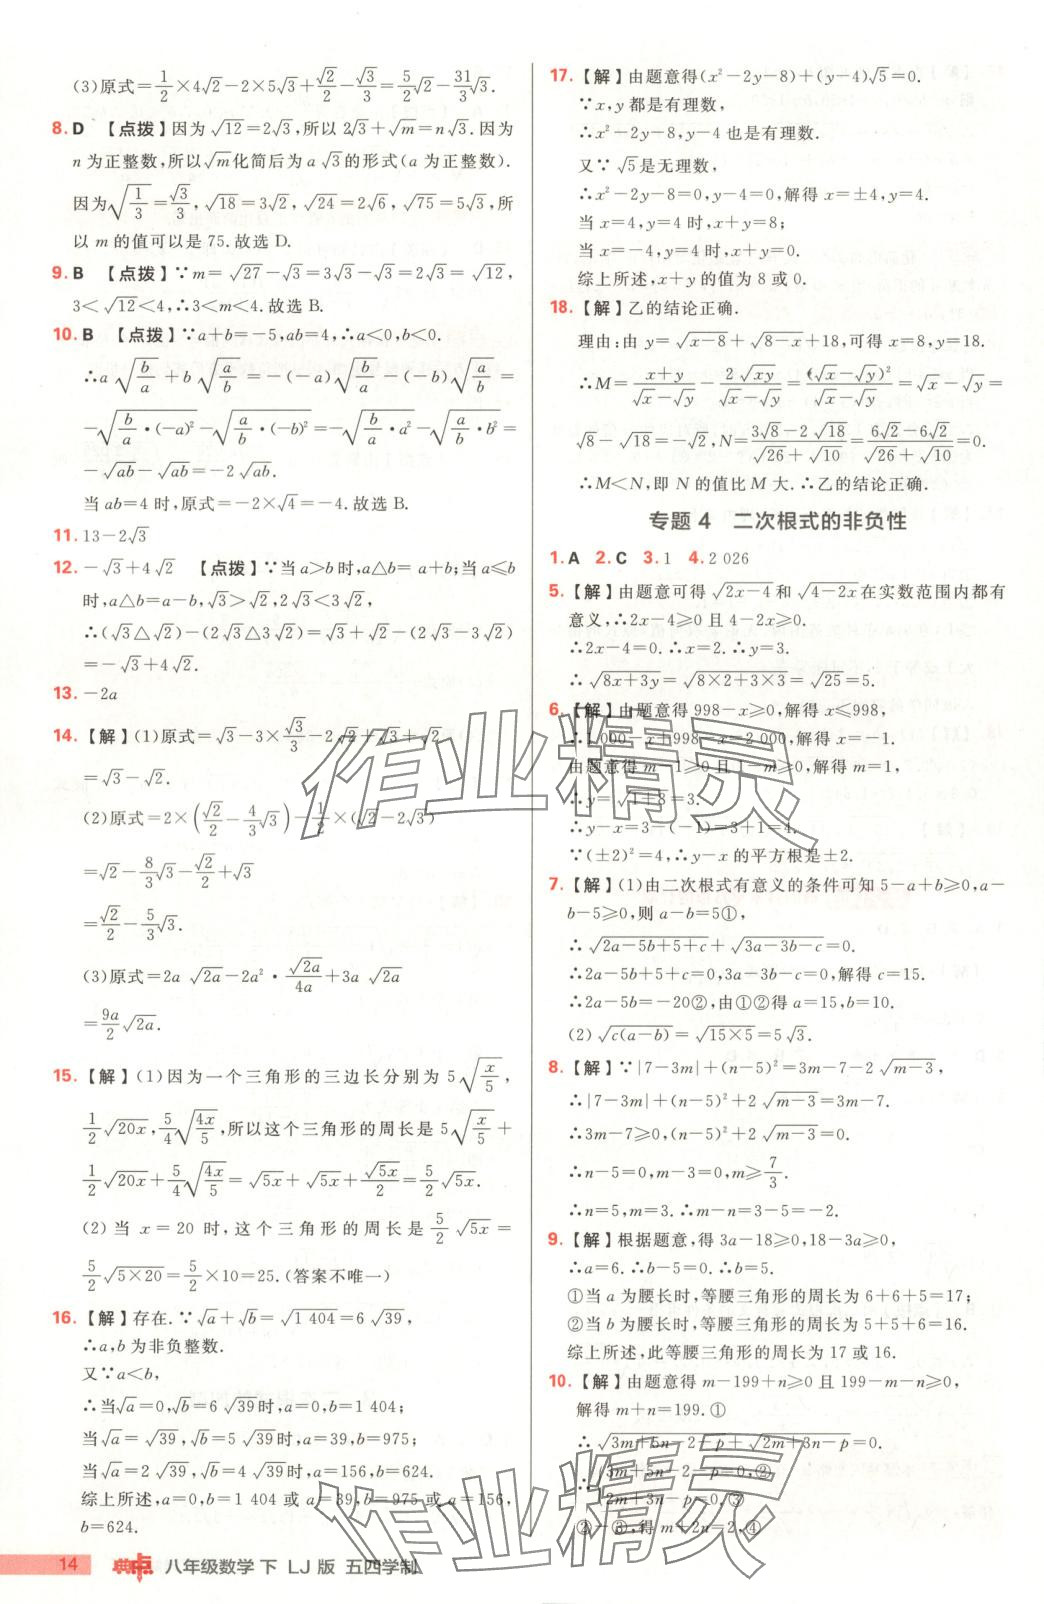 (3)原式=1/2×4√2-2×5√3+√2/2-√3/3=5/2√2-31/3√3.
8.D 【点拨】因为√12=2√3,所以2√3+√m=n√3.因为
n为正整数,所以√m化简后为a√3的形式(a为正整数).
因为√(1/3)=√3/3,√18=3√2,√24=2√6,√75=5√3,所
以m的值可以是75.故选D.
9.B 【点拨】∵m=√27-√3=3√3-√3=2√3=√12,
3<√12<4,∴3<m<4.故选B.
10.B 【点拨】∵a+b=-5,ab=4,∴a<0,b<0.
∴a√(b/a)+b√(a/b)=-(-a)√(b/a)-(-b)√(a/b)=
-√(b/a·(-a)²)-√(a/b·(-b)²)=-√(b/a·a²)-√(a/b·b²)=
-√ab-√ab=-2√ab.
当ab=4时,原式=-2×√4=-4.故选B.
11.13-2√3
12.-√3+4√2 【点拨】∵当a>b时,a△b=a+b;当a≤b
时,a△b=a-b,√3>√2,2√3<3√2,
∴(√3△√2)-(2√3△3√2)=√3+√2-(2√3-3√2)
=-√3+4√2.
13.-2a
14.【解】(1)原式=√3-3×√3/3-2√2+√3+√2
=√3-√2.
(2)原式=2×(√2/2-4/3√3)-1/2×(√2-2√3)
=√2-8/3√3-√2/2+√3
=√2/2-5/3√3.
(3)原式=2a√2a-2a²·√2a/4a+3a√2a
=9a/2√2a.
15.【解】(1)因为一个三角形的三边长分别为5√(x/5),
1/2√20x,5/4√(4x/5),所以这个三角形的周长是5√(x/5)+
1/2√20x+5/4√(4x/5)=√5x+√5x+√5x/2=5/2√5x.
(2)当x=20时,这个三角形的周长是5/2√5x=
5/2√(5×20)=5/2×10=25.(答案不唯一)
16.【解】存在.∵√a+√b=√1 404=6√39,
∴a,b为非负整数.
又∵a<b,
∴当√a=0,√b=6√39时,a=0,b=1 404;
当√a=√39,√b=5√39时,a=39,b=975;
当√a=2√39,√b=4√39时,a=156,b=624.
综上所述,a=0,b=1 404或a=39,b=975或a=156,
b=624.
17.【解】由题意得(x²-2y-8)+(y-4)√5=0.
∵x,y都是有理数,
∴x²-2y-8,y-4也是有理数.
又∵√5是无理数,
∴x²-2y-8=0,y-4=0,解得x=±4,y=4.
当x=4,y=4时,x+y=8;
当x=-4,y=4时,x+y=0.
综上所述,x+y的值为8或0.
18.【解】乙的结论正确.
理由:由y=√(x-8)+√(8-x)+18,可得x=8,y=18.
∴M=(x+y)/(√x-√y)-2√xy/(√x-√y)=(√x-√y)²/(√x-√y)=√x-√y=
√8-√18=-√2,N=(3√8-2√18)/(√26+√10)=(6√2-6√2)/(√26+√10)=0.
∴M<N,即N的值比M大.∴乙的结论正确.
专题4 二次根式的非负性
1.A 2.C 3.1 4.2 026
5.【解】由题意可得√(2x-4)和√(4-2x)在实数范围内都有
意义,∴2x-4≥0且4-2x≥0.
∴2x-4=0.∴x=2.∴y=3.
∴√(8x+3y)=√(8×2+3×3)=√25=5.
6.【解】由题意得998-x≥0,解得x≤998,
∴1 000-x+998-x=2 000,解得x=-1.
由题意得m-1≥0且1-m≥0,解得m=1,
∴y=√(1+8)=3.
∴y-x=3-(-1)=3+1=4.
∵(±2)²=4,∴y-x的平方根是±2.
7.【解】(1)由二次根式有意义的条件可知5-a+b≥0,a-
b-5≥0,则a-b=5①,
∴√(2a-5b+5+c)+√(3a-3b-c)=0.
∴2a-5b+5+c=0,3a-3b-c=0,解得c=15.
∴2a-5b=-20②,由①②得a=15,b=10.
(2)√(c(a-b))=√(15×5)=5√3.
8.【解】∵|7-3m|+(n-5)²=3m-7-2√(m-3),
∴|7-3m|+(n-5)²+2√(m-3)=3m-7.
∴3m-7≥0,(n-5)²+2√(m-3)=0.
∴n-5=0,m-3=0,m≥7/3.
∴n=5,m=3.∴m-n=3-5=-2.
9.【解】根据题意,得3a-18≥0,18-3a≥0,
∴a=6.∴b-5=0.∴b=5.
①当a为腰长时,等腰三角形的周长为6+6+5=17;
②当b为腰长时,等腰三角形的周长为5+5+6=16.
综上所述,此等腰三角形的周长为17或16.
10.【解】由题意得m-199+n≥0且199-m-n≥0,
解得m+n=199.①
∴√(3m+5n-2-p)+√(2m+3n-p)=0.
∴{3m+5n-2-p=0,②
2m+3n-p=0.③
②-③,得m+2n=2,④
作业精灵
作业精灵
14 典中点 八年级数学 下 LJ版 五四学制